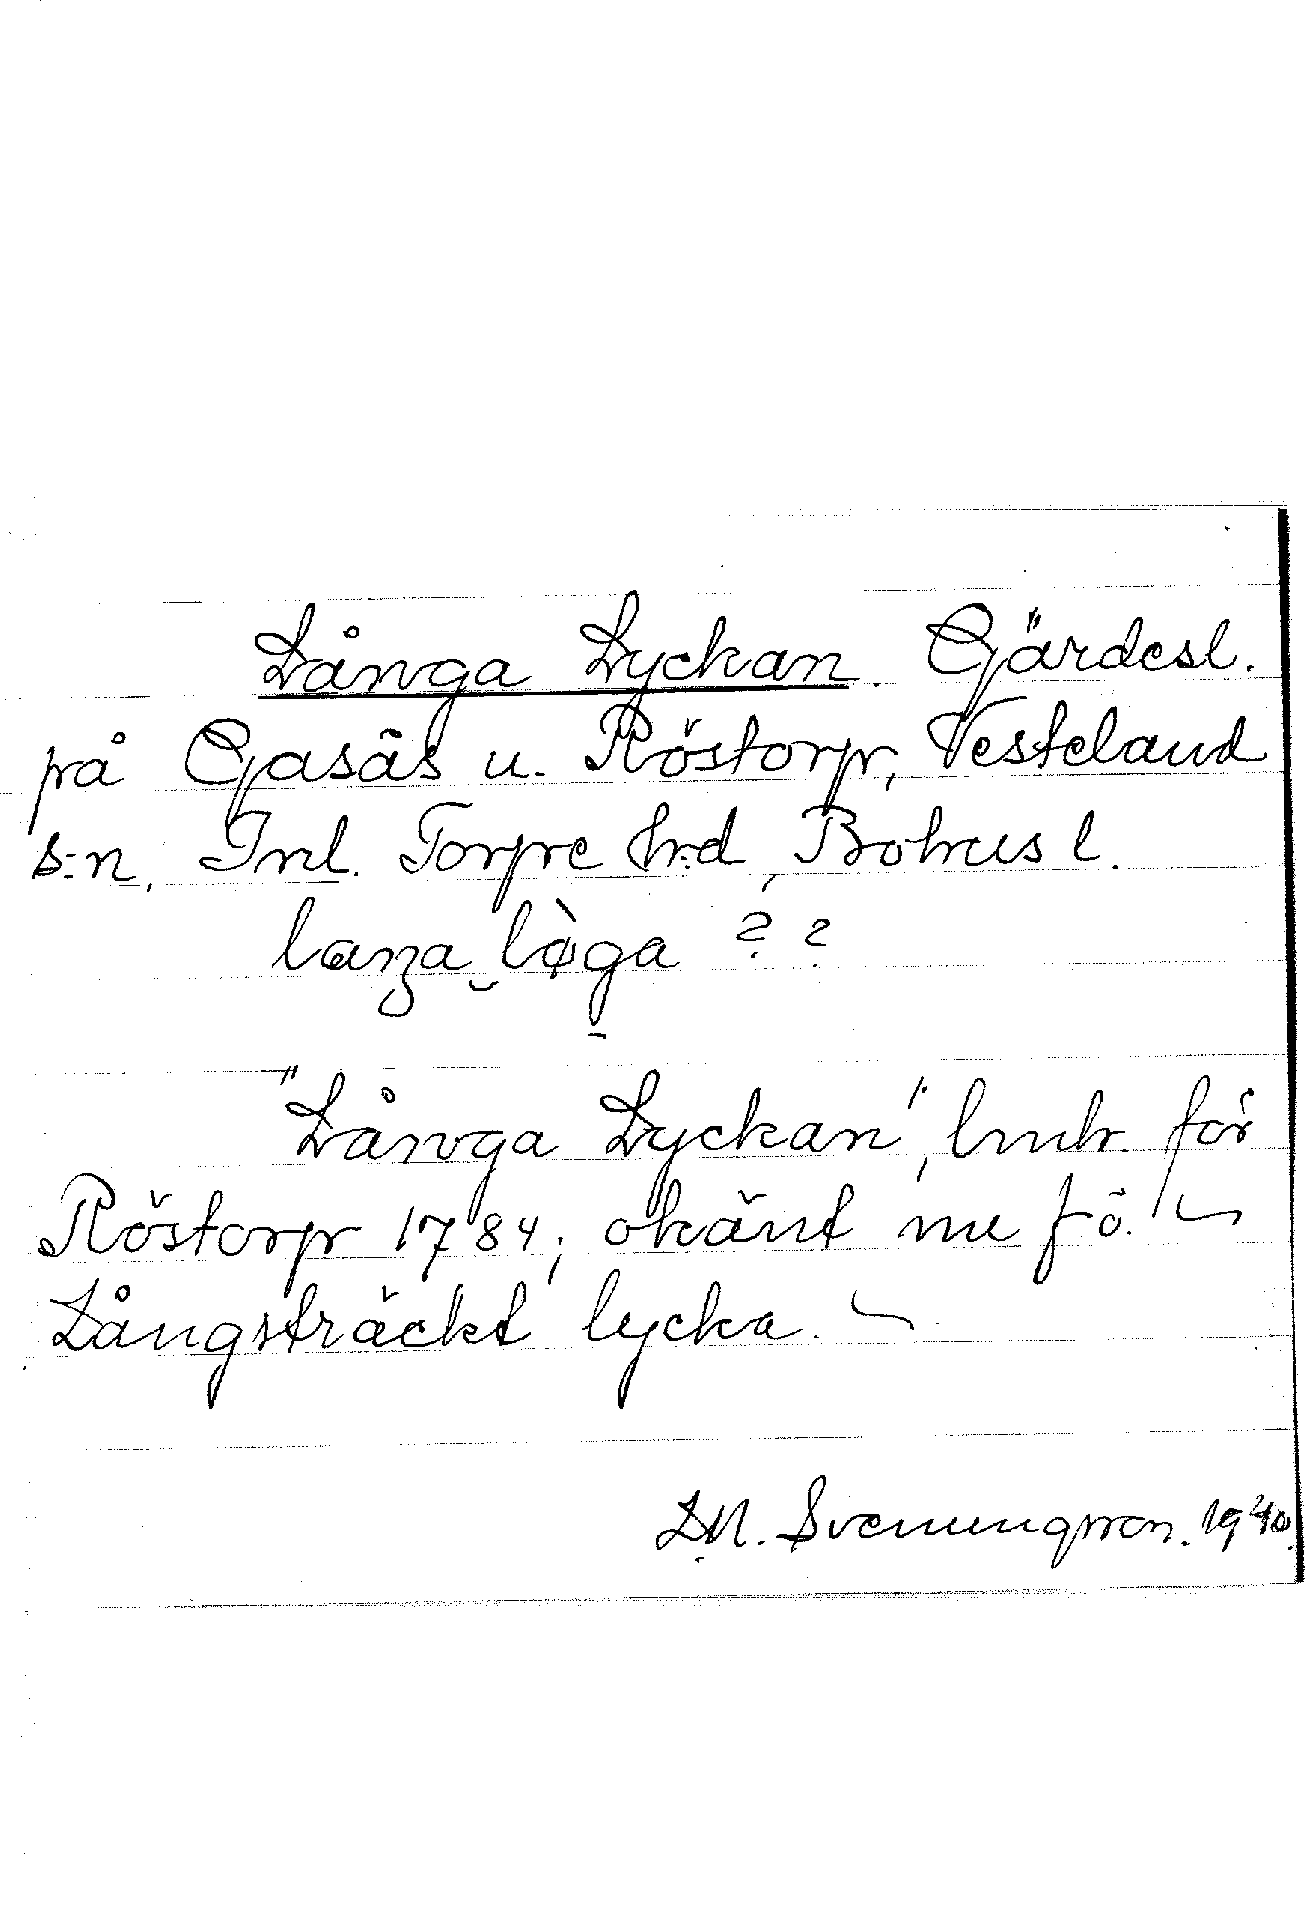 Långa Lyckan. Gärdesl.
på Gasås u. Röstorp, Vesteland
s:n, Inl. Torpe hrd, Bohus l.
laŋa løga ? ?
"Långa Lyckan", lmh. för
Röstorp 1784; okänt nu fö.
Långsträckt lycka.
L.M. Svenungsson. 1940.